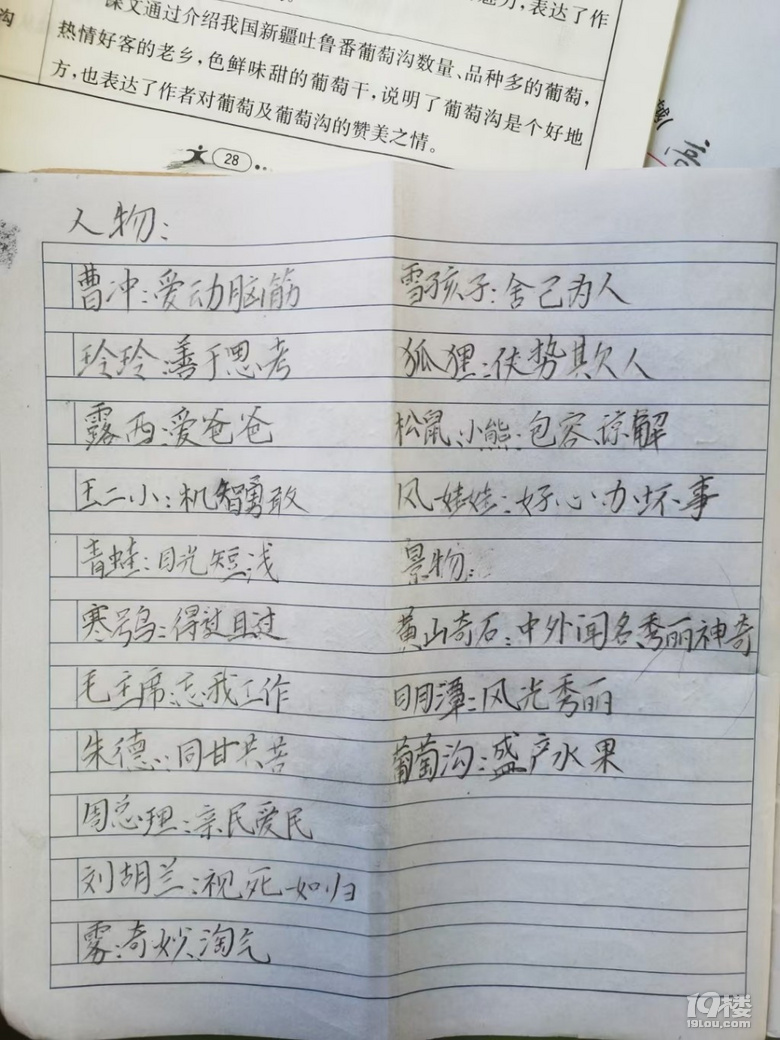 力,表达了作
沟
课文通过介绍我国新疆吐鲁番葡萄沟数量、品种多的葡萄,
热情好客的老乡,色鲜味甜的葡萄干,说明了葡萄沟是个好地
方,也表达了作者对葡萄及葡萄沟的赞美之情。
28
人物:
曹冲:爱动脑筋
玲玲:善于思考
露西:爱爸爸
王二小:机智勇敢
青蛙:目光短浅
寒号鸟:得过且过
毛主席:忘我工作
朱德:同甘共苦
周总理:亲民爱民
刘胡兰:视死如归
雾:奇妙、淘气
雪孩子:舍己为人
狐狸:伏势欺人
松鼠、小熊:包容、谅解
风娃娃:好心办坏事
景物:
黄山奇石:中外闻名秀丽神奇
日月潭:风光秀丽
葡萄沟:盛产水果
19楼
19lou.com